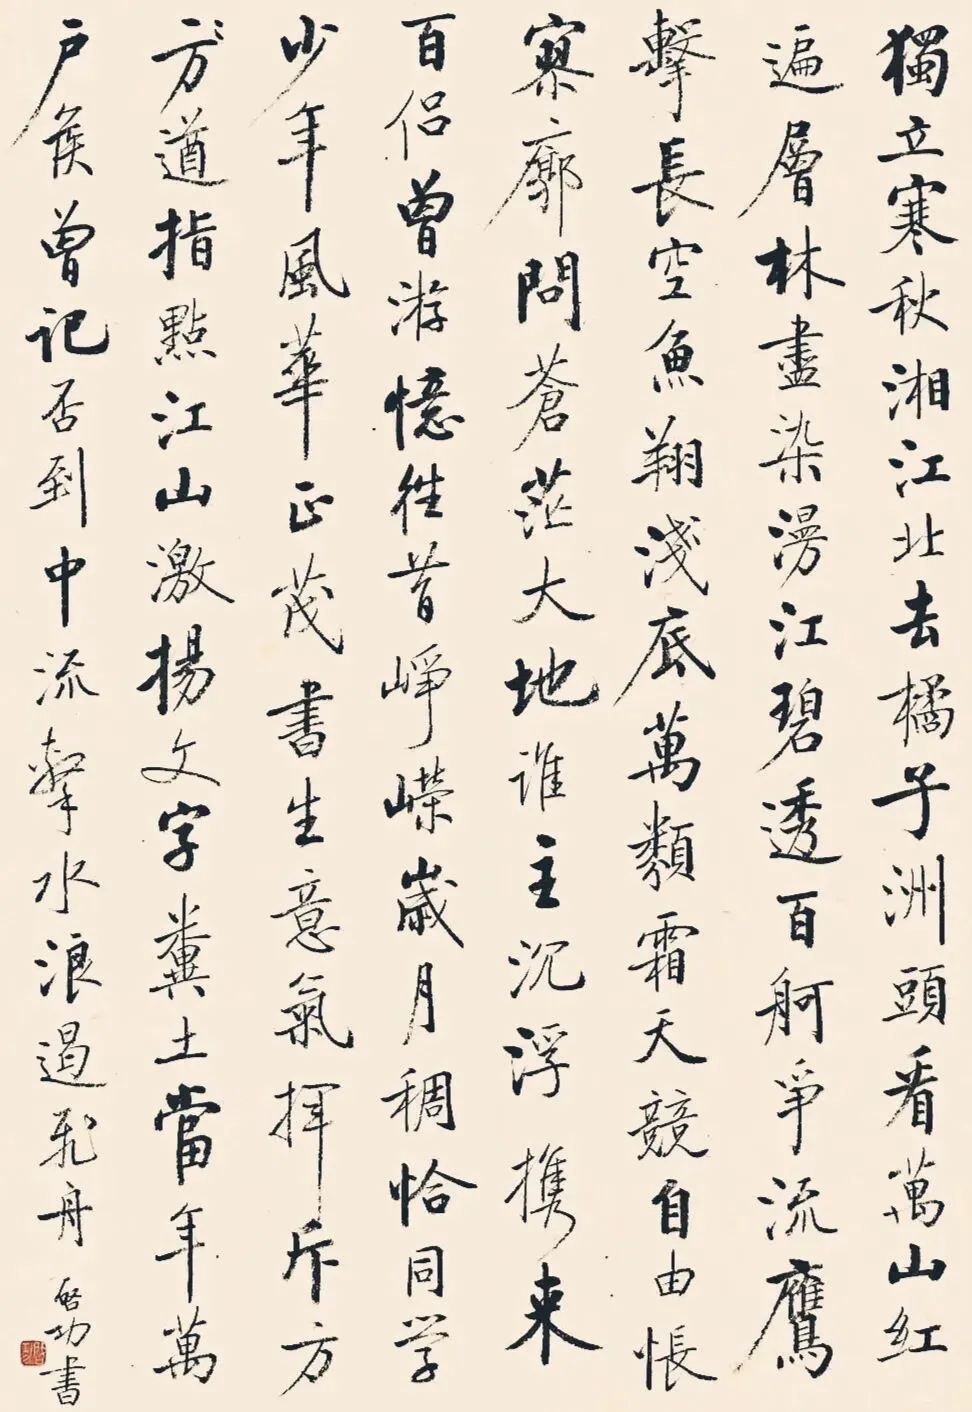 獨立寒秋湘江北去橘子洲頭看萬山紅
遍層林盡染漫江碧透百舸爭流鷹
擊長空魚翔淺底萬類霜天競自由悵
寥廓問蒼茫大地誰主沉浮携来
百侣曾游憶往昔崢嶸歲月稠恰同学
少年風華正茂書生意氣揮斥方
方遒指點江山激揚文字糞土當年萬
户侯曾記否到中流擊水浪遏飛舟
啓功書